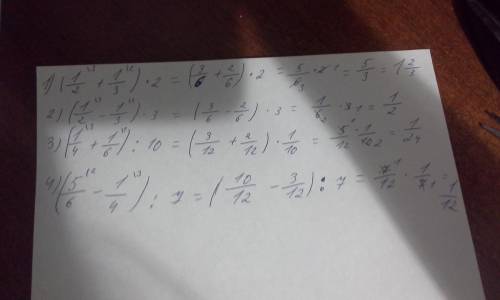 1) (1/2 + 1/3) · 2 = (3/6 + 2/6) · 2 = 5/6 · 2 = 5/3 = 1 2/3
2) (1/2 - 1/3) · 3 = (3/6 - 2/6) · 3 = 1/6 · 3 = 1/2
3) (1/4 + 1/6) : 10 = (3/12 + 2/12) · 1/10 = 5/12 · 1/10 = 1/24
4) (5/6 - 1/4) : 7 = (10/12 - 3/12) : 7 = 7/12 · 1/7 = 1/12